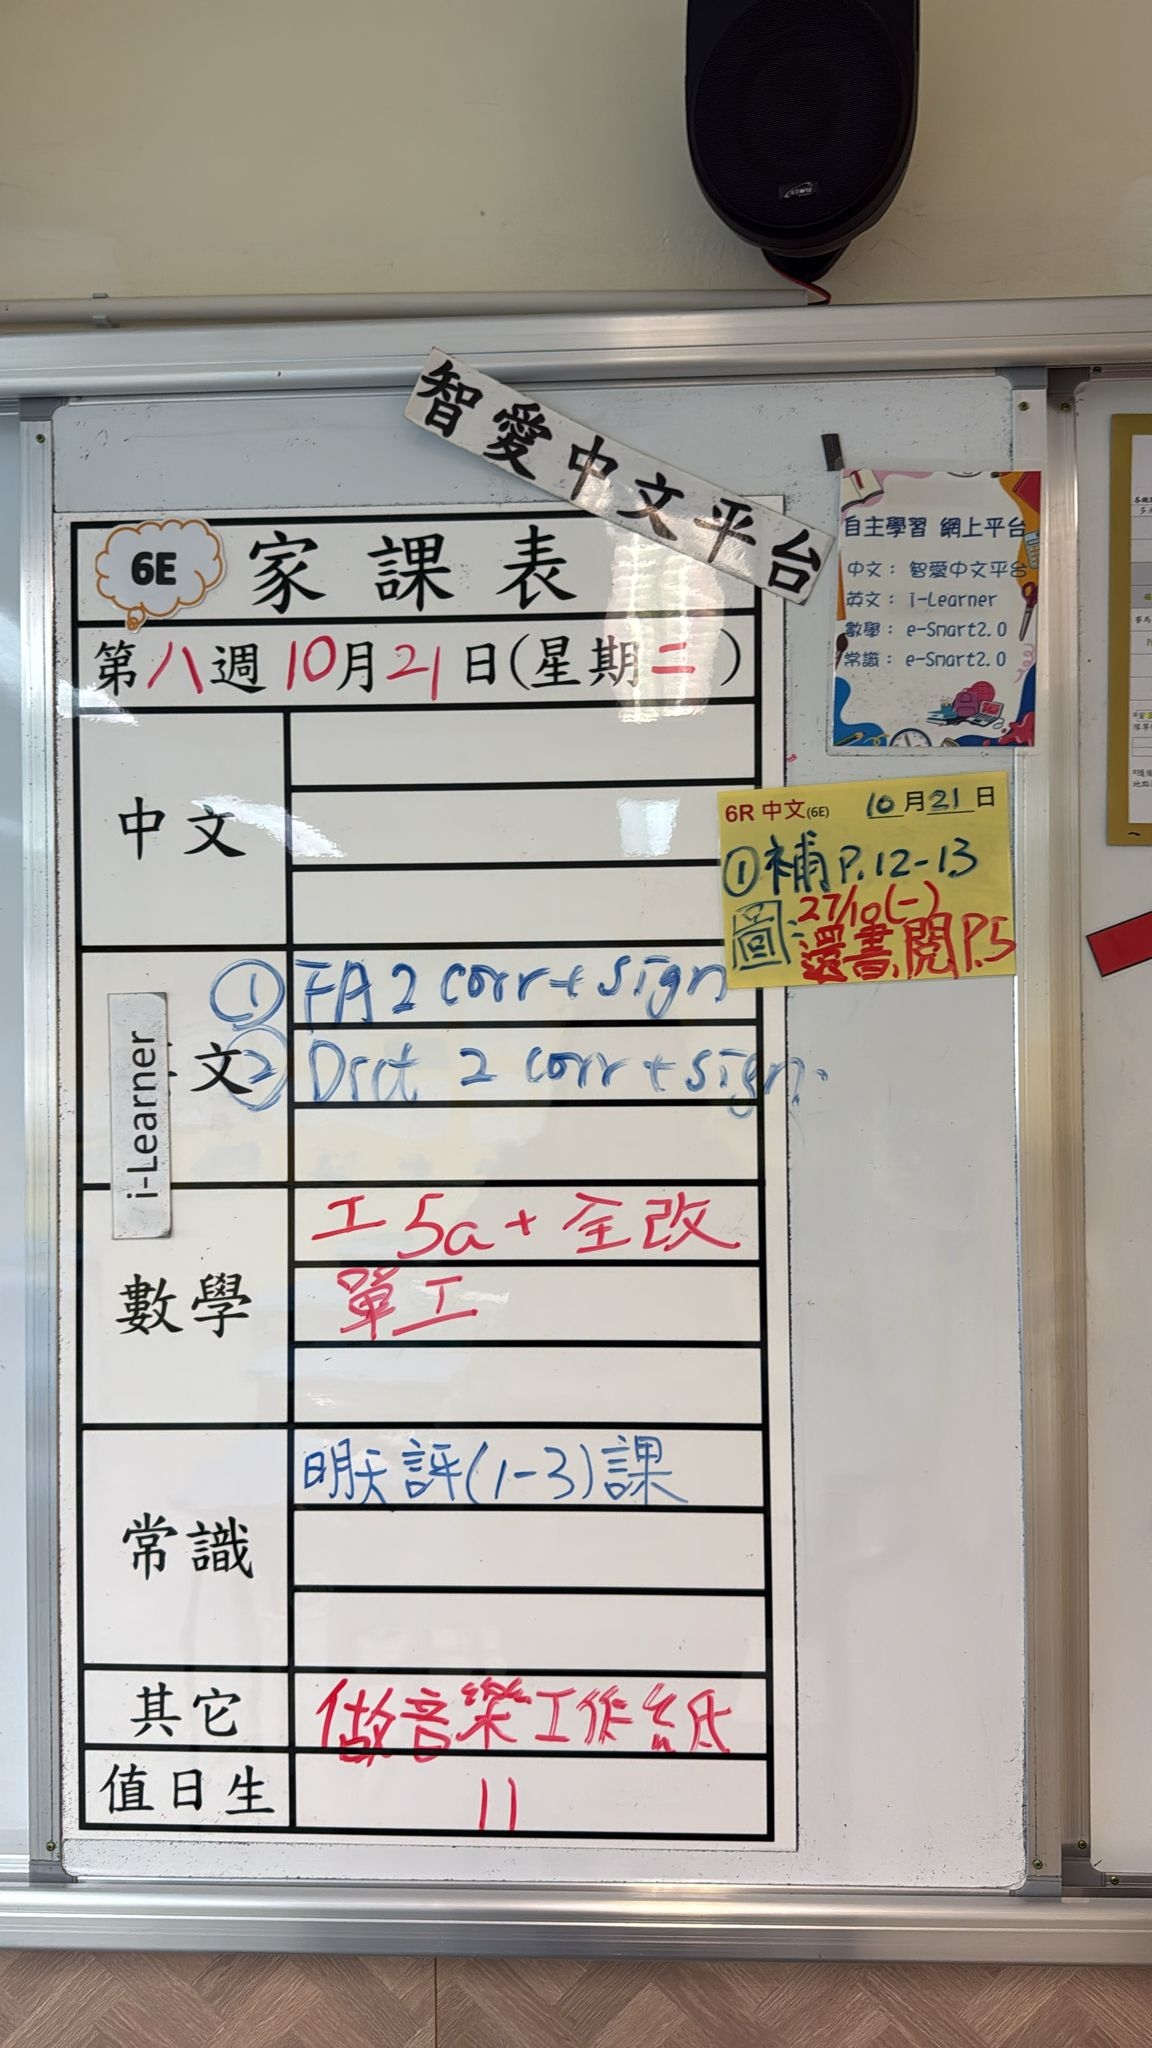 智愛中文平台
6E 家課表
第八週10月21日(星期二)
中文
i-Learner
文
① FA 2 corr + sign
② Dict 2 corr + sign.
數學
工 5a + 全改
單工
常識
明天評(1-3)課
其它
做音樂工作紙
值日生
11
自主學習 網上平台
中文： 智愛中文平台
英文： i-Learner
數學： e-Smart2.0
常識： e-Smart2.0
6R 中文(6E) 10月21日
①補P.12-13
圖: 27/10(一)
還書,閱P.5